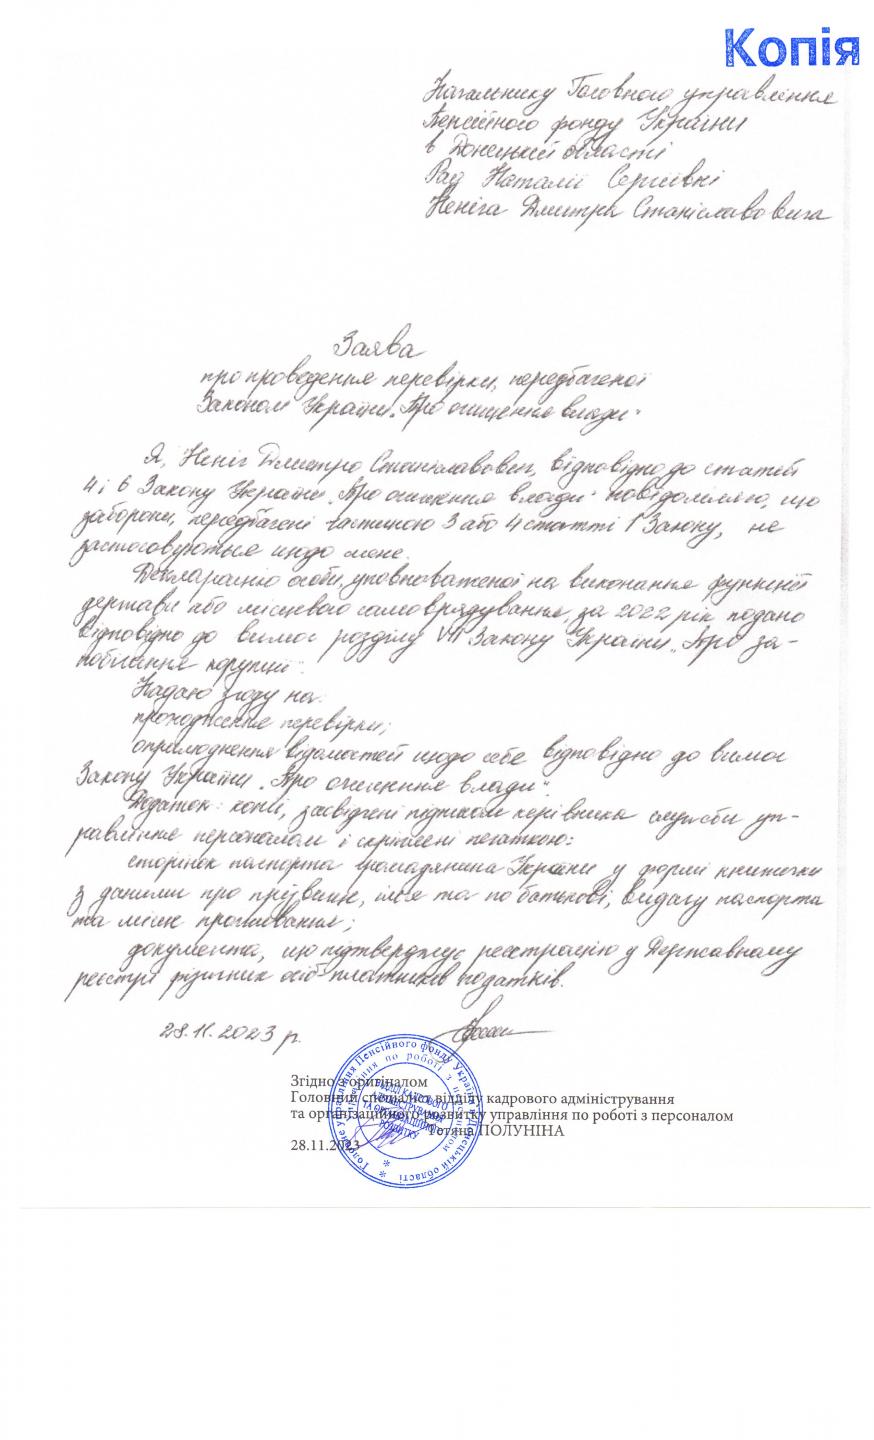 Копія
Начальнику Головного управління
Пенсійного фонду України
в Донецькій області
Рад Наталії Сергіївні
Неніга Дмитра Станіславовича
Заява
про проведення перевірки, передбаченої
Законом України „Про очищення влади"
Я, Неніг Дмитро Станіславович, відповідно до статей
4 і 6 Закону України „Про очищення влади" повідомляю, що
заборони, передбачені частиною 3 або 4 статті 1 Закону, не
застосовуються щодо мене.
Декларацію особи, уповноваженої на виконання функцій
держави або місцевого самоврядування, за 2022 рік подано
відповідно до вимог розділу VII Закону України „Про за-
побігання корупції".
Надаю згоду на:
проходження перевірки;
оприлюднення відомостей щодо себе відповідно до вимог
Закону України „Про очищення влади".
Додаток: копії, засвідчені підписом керівника служби уп-
равління персоналом і скріплені печаткою:
сторінок паспорта громадянина України у формі книжечки
з даними про прізвище, ім'я та по батькові, видачу паспорта
та місце проживання;
документа, що підтверджує реєстрацію у Державному
реєстрі фізичних осіб-платників податків.
28.11.2023 р.
Згідно з оригіналом
Головний спеціаліст відділу кадрового адміністрування
та організаційного розвитку управління по роботі з персоналом
Тетяна ПОЛУНІНА
28.11.2023
Головне управління Пенсійного фонду України в Донецькій області
управління по роботі з персоналом
ВІДДІЛ КАДРОВОГО
АДМІНІСТРУВАННЯ
ТА ОРГАНІЗАЦІЙНОГО
РОЗВИТКУ